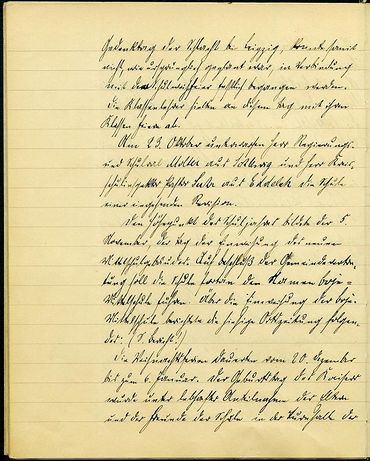 Gedenktag der Schlacht bei Leipzig, konnte somit
nicht, wie ursprünglich geplant war, in Verbindung
mit der Schulfeier festlich begangen werden.
Die Klassenlehrer hielten an diesem Tag mit ihren
Klassen Feiern ab.
Am 23. Oktober unterzogen Herr Regierungs-
und Schulrat Möller aus Schleswig und Herr Kreis-
schulinspektor Pastor aus Eddelak die Schule
einer eingehenden Revision.
Den Höhepunkt des Schuljahres bildete der 5.
November, der Tag der Einweihung des neuen
Mittelschulgebäudes. Auf Beschluß der Gemeindevertre-
tung soll die Schule fortan den Namen Boje-
Mittelschule führen. Über die Einweihung der Boje-
Mittelschule berichtete die hiesige Ortszeitung folgen-
des: (S. Bericht!)
Die Weihnachtsferien dauerten vom 20. Dezember
bis zum 6. Januar. Der Geburtstag des Kaisers
wurde unter lebhafter Anteilnahme der Eltern
und der Freunde der Schule in der Turnhalle der